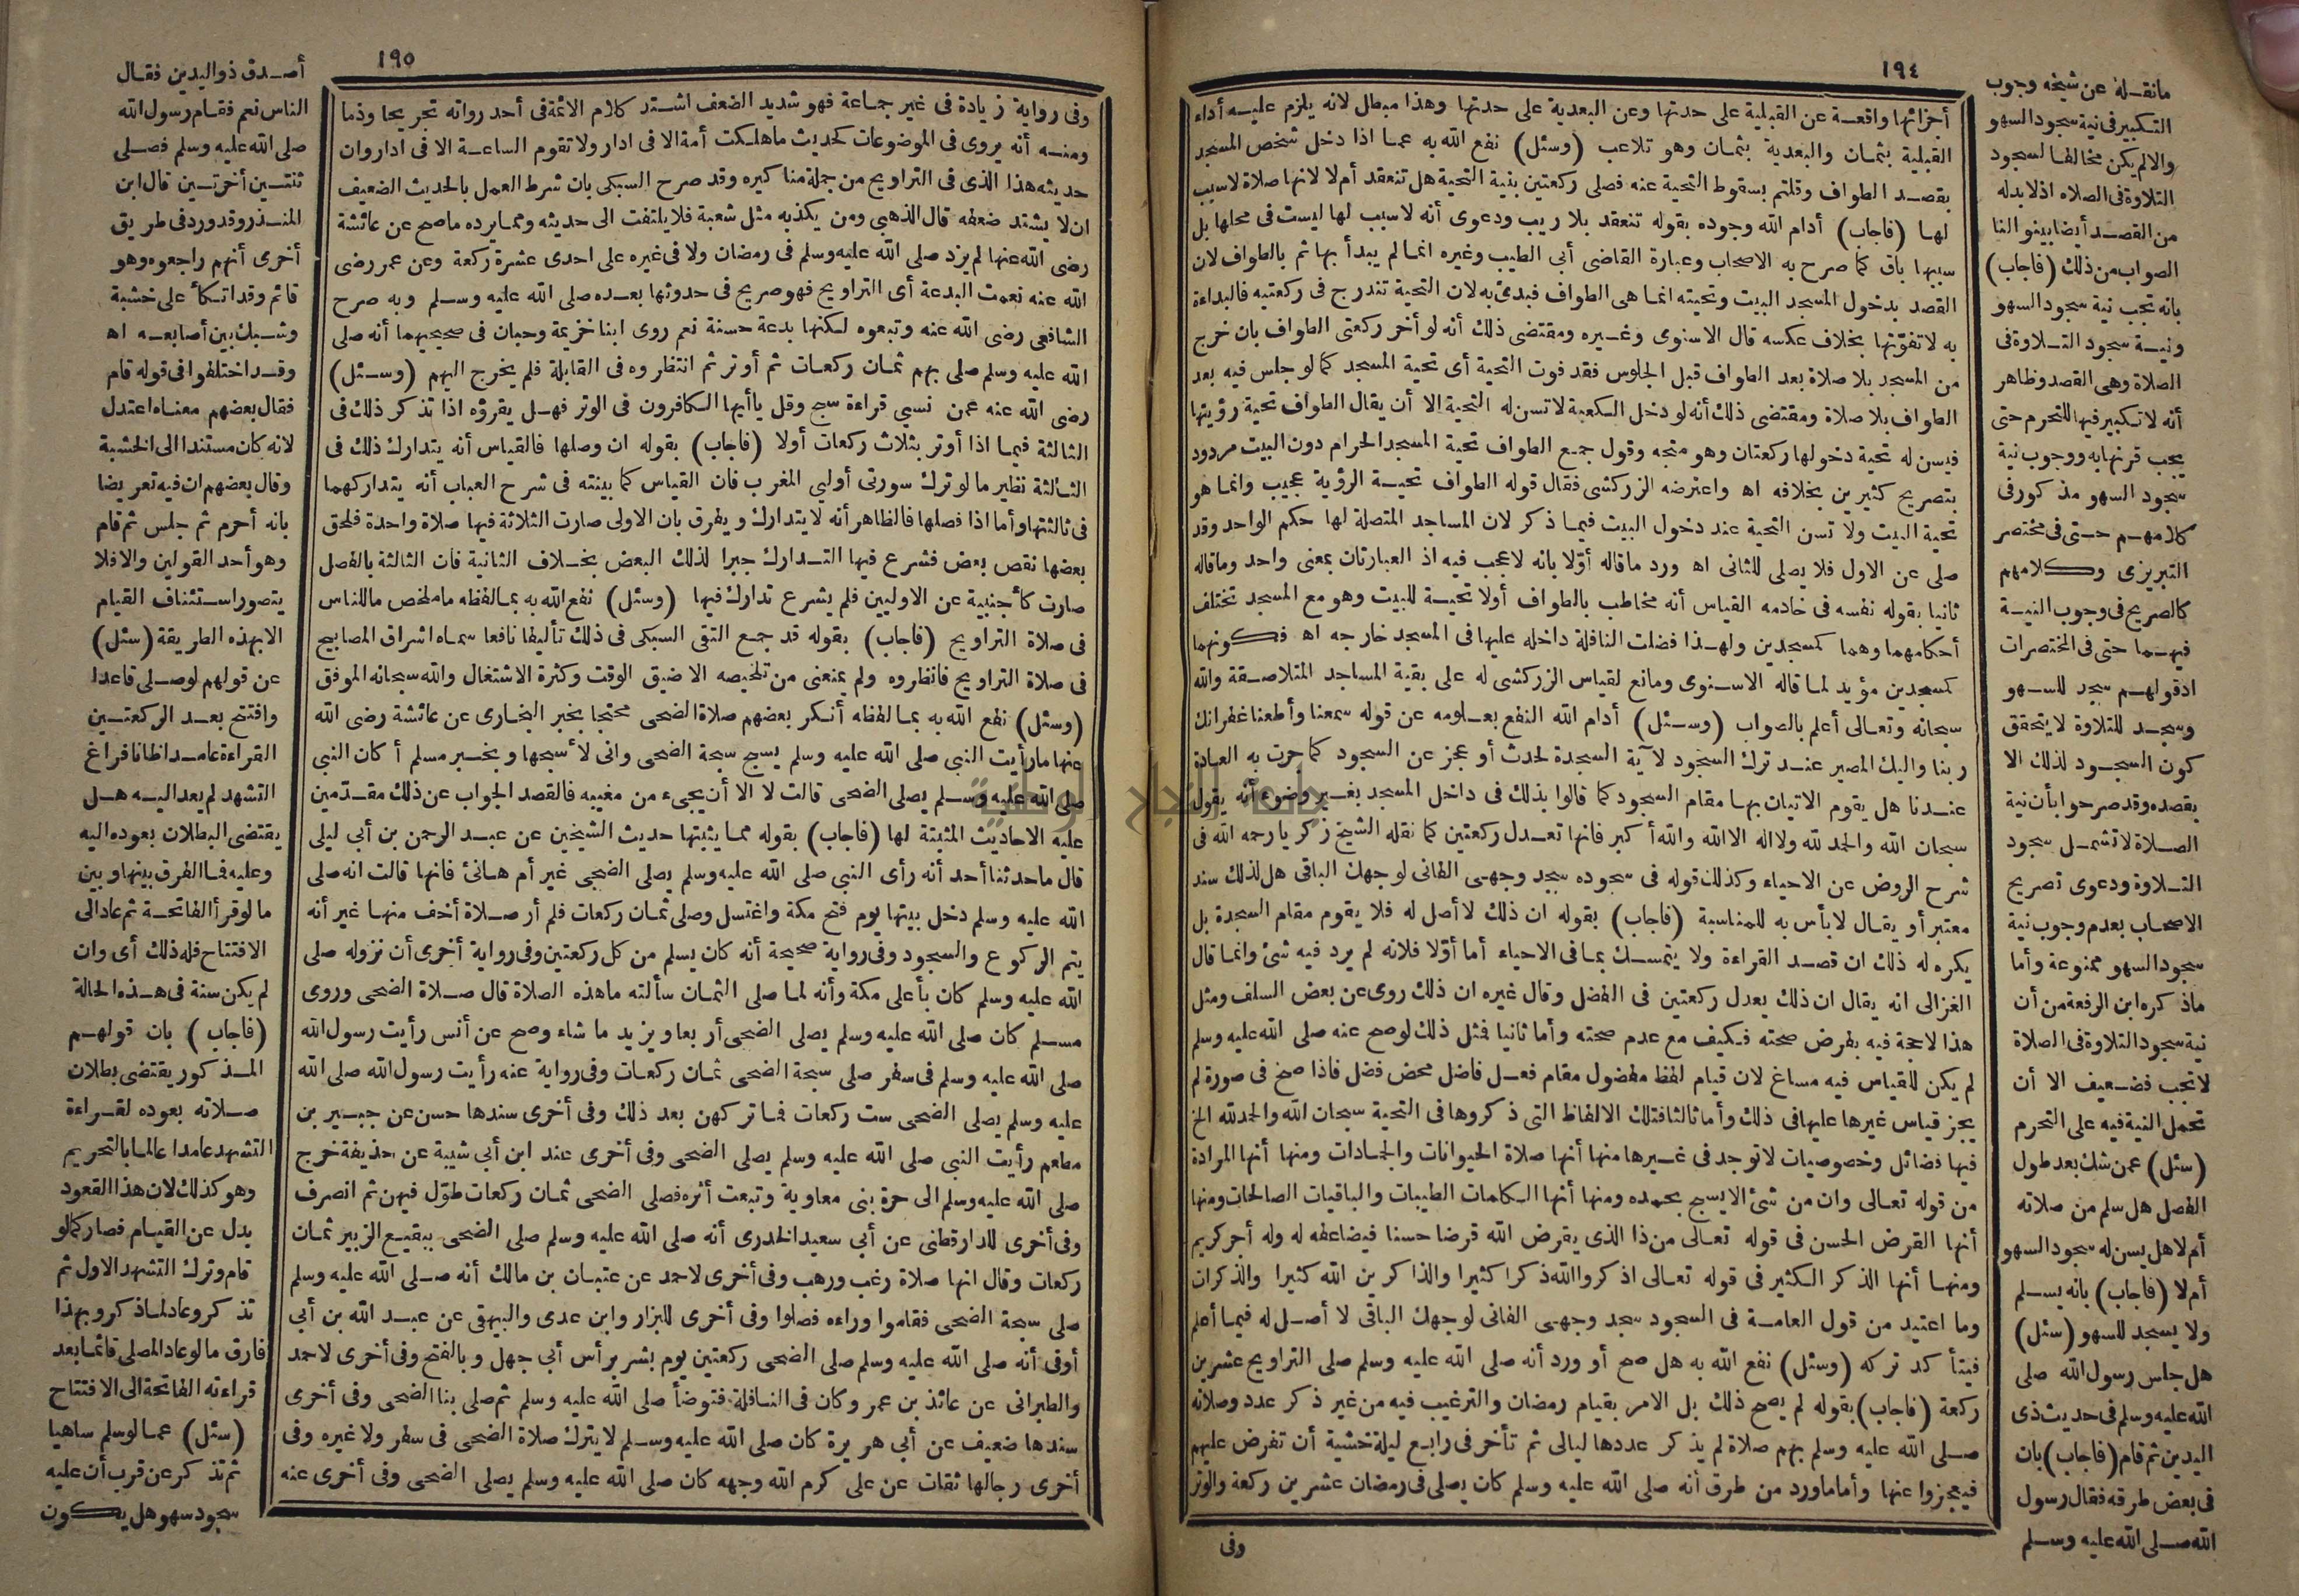 ١٩٤
أجزائها واقعة عن القبلية على حدتها وعن البعدية على حدتها وهذا مبطل لانه يلزم عليه أداء
القبلية بثمان والبعدية بثمان وهو تلاعب (وسئل) نفع الله به عما اذا دخل شخص المسجد
بقصد الطواف وقلتم بسقوط التحية عنه فصلى ركعتين بنية التحية هل تنعقد أم لا لانها صلاة لاسبب
لها (فاجاب) أدام الله وجوده بقوله تنعقد بلا ريب ودعوى أنه لاسبب لها ليست فى محلها بل
سببها باق كما صرح به الاصحاب وعبارة القاضى أبى الطيب وغيره انما لم يبدأ بها ثم بالطواف لان
القصد بدخول المسجد البيت وتحيته انما هى الطواف فبدئ به لان التحية تندرج فى ركعتيه فالبداءة
به لا تفوّتها بخلاف عكسه قال الاسنوى وغيره ومقتضى ذلك أنه لو أخر ركعتى الطواف بان خرج
من المسجد بلا صلاة بعد الطواف قبل الجلوس فقد فوت التحية أى تحية المسجد كما لو جلس فيه بعد
الطواف بلا صلاة ومقتضى ذلك أنه لو دخل الكعبة لا تسن له التحية الا أن يقال الطواف تحية رؤيتها
فيسن له تحية دخولها ركعتان وهو متجه وقول جمع الطواف تحية المسجد الحرام دون البيت مردود
بتصريح كثيرين بخلافه اه واعترضه الزركشى فقال قوله الطواف تحية الرؤية عجيب وانما هو
تحية البيت ولا تسن التحية عند دخول البيت فيما ذكر لان المساجد المتصلة لها حكم الواحد وقد
صلى عن الاول فلا يصلى للثانى اه ورد ماقاله أوّلا بانه لا عجب فيه اذ العبارتان بمعنى واحد وماقاله
ثانيا بقوله نفسه فى خادمه القياس أنه مخاطب بالطواف أولا تحية للبيت وهو مع المسجد تختلف
أحكامهما وهما كمسجدين ولهذا فضلت النافلة داخله عليها فى المسجد خارجه اه فكونهما
كمسجدين مؤيد لما قاله الاسنوى ومانع لقياس الزركشى له على بقية المساجد المتلاصقة والله
سبحانه وتعالى أعلم بالصواب (وسئل) أدام الله النفع بعلومه عن قوله سمعنا وأطعنا غفرانك
ربنا واليك المصير عند ترك السجود لآية السجدة لحدث أو عجز عن السجود كما جرت به العادة
عندنا هل يقوم الاتيان بها مقام السجود كما قالوا بذلك فى داخل المسجد بغير وضوء أنه يقول
سبحان الله والحمد لله ولااله الاالله والله أكبر فانها تعدل ركعتين كما نقله الشيخ زكريا رحمه الله فى
شرح الروض عن الاحياء وكذلك قوله فى سجوده سجد وجهى الفانى لوجهك الباقى هل لذلك سند
معتبر أو يقال لابأس به للمناسبة (فاجاب) بقوله ان ذلك لا أصل له فلا يقوم مقام السجدة بل
يكره له ذلك ان قصد القراءة ولا يتمسك بما فى الاحياء أما أوّلا فلانه لم يرد فيه شئ وانما قال
الغزالى انه يقال ان ذلك يعدل ركعتين فى الفضل وقال غيره ان ذلك روى عن بعض السلف ومثل
هذا لاحجة فيه بفرض صحته فكيف مع عدم صحته وأما ثانيا فمثل ذلك لو صح عنه صلى الله عليه وسلم
لم يكن للقياس فيه مساغ لان قيام لفظ مفضول مقام فعل فاضل محض فضل فاذا صح فى صورة لم
يجز قياس غيرها عليها فى ذلك وأما ثالثا فتلك الالفاظ التى ذكروها فى التحية سبحان الله والحمدلله الخ
فيها فضائل وخصوصيات لاتوجد فى غيرها منها أنها صلاة الحيوانات والجمادات ومنها أنها المرادة
من قوله تعالى وان من شئ الا يسبح بحمده ومنها أنها الكلمات الطيبات والباقيات الصالحات ومنها
أنها القرض الحسن فى قوله تعالى من ذا الذى يقرض الله قرضا حسنا فيضاعفه له وله أجر كريم
ومنها أنها الذكر الكثير فى قوله تعالى اذكروا الله ذكرا كثيرا والذاكرين الله كثيرا والذكران
وما اعتيد من قول العامة فى السجود سجد وجهى الفانى لوجهك الباقى لا أصل له فيما أعلم
فيتأكد تركه (وسئل) نفع الله به هل صح أو ورد أنه صلى الله عليه وسلم صلى التراويح عشرين
ركعة (فاجاب) بقوله لم يصح ذلك بل الامر بقيام رمضان والترغيب فيه من غير ذكر عدد وصلاته
صلى الله عليه وسلم بهم صلاة لم يذكر عددها ليالى ثم تأخر فى رابع ليلة خشية أن تفرض عليهم
فيعجزوا عنها وأما ماورد من طرق أنه صلى الله عليه وسلم كان يصلى فى رمضان عشرين ركعة والوتر
وفى
مانقله عن شيخه وجوب
التكبير فى نية سجود السهو
والا لم يكن مخالفا لسجود
التلاوة فى الصلاه اذ لابد له
من القصد أيضا بينوا لنا
الصواب من ذلك (فاجاب)
بانه تجب نية سجود السهو
ونية سجود التلاوة فى
الصلاة وهى القصد وظاهر
أنه لا تكبير فيها للتحرم حتى
يجب قرنها به ووجوب نية
سجود السهو مذكور فى
كلامهم حتى فى مختصر
التبريزى وكلامهم
كالصريح فى وجوب النية
فيهما حتى فى المختصرات
اذ قولهم سجد للسهو
وسجد للتلاوة لا يتحقق
كون السجود لذلك الا
بقصده وقد صرحوا بأن نية
الصلاة لا تشمل سجود
التلاوة ودعوى تصريح
الاصحاب بعدم وجوب نية
سجود السهو ممنوعة وأما
ماذكره ابن الرفعة من أن
نية سجود التلاوة فى الصلاة
لا تجب فضعيف الا أن
تحمل النية فيه على التحرم
(سئل) عمن شك بعد طول
الفصل هل سلم من صلاته
أم لا هل يسن له سجود السهو
أم لا (فاجاب) بانه يسلم
ولا يسجد للسهو (سئل)
هل جلس رسول الله صلى
الله عليه وسلم فى حديث ذى
اليدين ثم قام (فاجاب) بان
فى بعض طرقه فقال رسول
الله صلى الله عليه وسلم
١٩٥
وفى رواية زيادة فى غير جماعة فهو شديد الضعف اشتد كلام الائمة فى أحد رواته تجريحا وذما
ومنه أنه يروى فى الموضوعات كحديث ماهلكت أمة الا فى ادار ولا تقوم الساعة الا فى ادار وان
حديثه هذا الذى فى التراويح من جملة مناكيره وقد صرح السبكى بان شرط العمل بالحديث الضعيف
ان لا يشتد ضعفه قال الذهبى ومن يكذبه مثل شعبة فلا يلتفت الى حديثه ومما يرده ماصح عن عائشة
رضى الله عنها لم يزد صلى الله عليه وسلم فى رمضان ولا فى غيره على احدى عشرة ركعة وعن عمر رضى
الله عنه نعمت البدعة أى التراويح فهو صريح فى حدوثها بعده صلى الله عليه وسلم وبه صرح
الشافعى رضى الله عنه وتبعوه لكنها بدعة حسنة نعم روى ابنا خزيمة وحبان فى صحيحيهما أنه صلى
الله عليه وسلم صلى بهم ثمان ركعات ثم أوتر ثم انتظروه فى القابلة فلم يخرج اليهم (وسئل)
رضى الله عنه عمن نسى قراءة سبح وقل ياأيها الكافرون فى الوتر فهل يقرؤه اذا تذكر ذلك فى
الثالثة فيما اذا أوتر بثلاث ركعات أولا (فاجاب) بقوله ان وصلها فالقياس أنه يتدارك ذلك فى
الثالثة نظير ما لو ترك سورتى أوليى المغرب فان القياس كما بينته فى شرح العباب أنه يتداركهما
فى ثالثتها وأما اذا فصلها فالظاهر أنه لا يتدارك ويفرق بان الاولى صارت الثلاثة فيها صلاة واحدة فلحق
بعضها نقص بعض فشرع فيها التدارك جبرا لذلك البعض بخلاف الثانية فان الثالثة بالفصل
صارت كأجنبية عن الاوليين فلم يشرع تدارك فيها (وسئل) نفع الله به بما لفظه ماملخص ماللناس
فى صلاة التراويح (فاجاب) بقوله قد جمع التقى السبكى فى ذلك تأليفا نافعا سماه اشراق المصابيح
فى صلاة التراويح فانظروه ولم يمنعنى من تلخيصه الا ضيق الوقت وكثرة الاشتغال والله سبحانه الموفق
(وسئل) نفع الله به بما لفظه أنكر بعضهم صلاة الضحى محتجا بخبر البخارى عن عائشة رضى الله
عنها ما رأيت النبى صلى الله عليه وسلم يسبح سبحة الضحى وانى لأسبحها وبخبر مسلم أكان النبى
صلى الله عليه وسلم يصلى الضحى قالت لا الا أن يجىء من مغيبه فالقصد الجواب عن ذلك مقدّمين
عليه الاحاديث المثبتة لها (فاجاب) بقوله مما يثبتها حديث الشيخين عن عبد الرحمن بن أبى ليلى
قال ماحدثنا أحد أنه رأى النبى صلى الله عليه وسلم يصلى الضحى غير أم هانئ فانها قالت انه صلى
الله عليه وسلم دخل بيتها يوم فتح مكة واغتسل وصلى ثمان ركعات فلم أر صلاة أخف منها غير أنه
يتم الركوع والسجود وفى رواية صحيحة أنه كان يسلم من كل ركعتين وفى رواية أخرى أن نزوله صلى
الله عليه وسلم كان بأعلى مكة وأنه لما صلى الثمان سألته ماهذه الصلاة قال صلاة الضحى وروى
مسلم كان صلى الله عليه وسلم يصلى الضحى أربعا ويزيد ما شاء وصح عن أنس رأيت رسول الله
صلى الله عليه وسلم فى سفر صلى سبحة الضحى ثمان ركعات وفى رواية عنه رأيت رسول الله صلى الله
عليه وسلم يصلى الضحى ست ركعات فما تركهن بعد ذلك وفى أخرى سندها حسن عن جبير بن
مطعم رأيت النبى صلى الله عليه وسلم يصلى الضحى وفى أخرى عند ابن أبى شيبة عن حذيفة خرج
صلى الله عليه وسلم الى حرة بنى معاوية وتبعت أثره فصلى الضحى ثمان ركعات طوّل فيهن ثم انصرف
وفى أخرى للدارقطنى عن أبى سعيد الخدرى أنه صلى الله عليه وسلم صلى الضحى ببقيع الزبير ثمان
ركعات وقال انها صلاة رغب ورهب وفى أخرى لاحمد عن عتبان بن مالك أنه صلى الله عليه وسلم
صلى سبحة الضحى فقاموا وراءه فصلوا وفى أخرى للبزار وابن عدى والبيهقى عن عبد الله بن أبى
أوفى أنه صلى الله عليه وسلم صلى الضحى ركعتين يوم بشر برأس أبى جهل وبالفتح وفى أخرى لاحمد
والطبرانى عن عائذ بن عمر وكان فى النافلة فتوضأ صلى الله عليه وسلم ثم صلى بنا الضحى وفى أخرى
سندها ضعيف عن أبى هريرة كان صلى الله عليه وسلم لا يترك صلاة الضحى فى سفر ولا غيره وفى
أخرى رجالها ثقات عن على كرم الله وجهه كان صلى الله عليه وسلم يصلى الضحى وفى أخرى عنه
أصدق ذواليدين فقال
الناس نعم فقام رسول الله
صلى الله عليه وسلم فصلى
ثنتين أخرتين قال ابن
المنذر وقد ورد فى طريق
أخرى أنهم راجعوه وهو
قائم وقد اتكأ على خشبة
وشبك بين أصابعه اه
وقد اختلفوا فى قوله قام
فقال بعضهم معناه اعتدل
لانه كان مستندا الى الخشبة
وقال بعضهم ان فيه تعريضا
بانه أحرم ثم جلس ثم قام
وهو أحد القولين والا فلا
يتصور استئناف القيام
الا بهذه الطريقة (سئل)
عن قولهم لو صلى قاعدا
وافتتح بعد الركعتين
القراءة عامدا ظانا فراغ
التشهد لم يعد اليه هل
يقتضى البطلان بعوده اليه
وعليه فما الفرق بينها وبين
ما لو قرأ الفاتحة ثم عاد الى
الافتتاح فله ذلك أى وان
لم يكن سنة فى هذه الحالة
(فاجاب) بان قولهم
المذكور يقتضى بطلان
صلاته بعوده لقراءة
التشهد عامدا عالما بالتحريم
وهو كذلك لان هذا القعود
بدل عن القيام فصار كما لو
قام وترك التشهد الاول ثم
تذكر وعاد لماذكر وبهذا
فارق ما لو عاد المصلى قائما بعد
قراءته الفاتحة الى الافتتاح
(سئل) عما لو سلم ساهيا
ثم تذكر عن قرب أن عليه
سجود سهو هل يكون